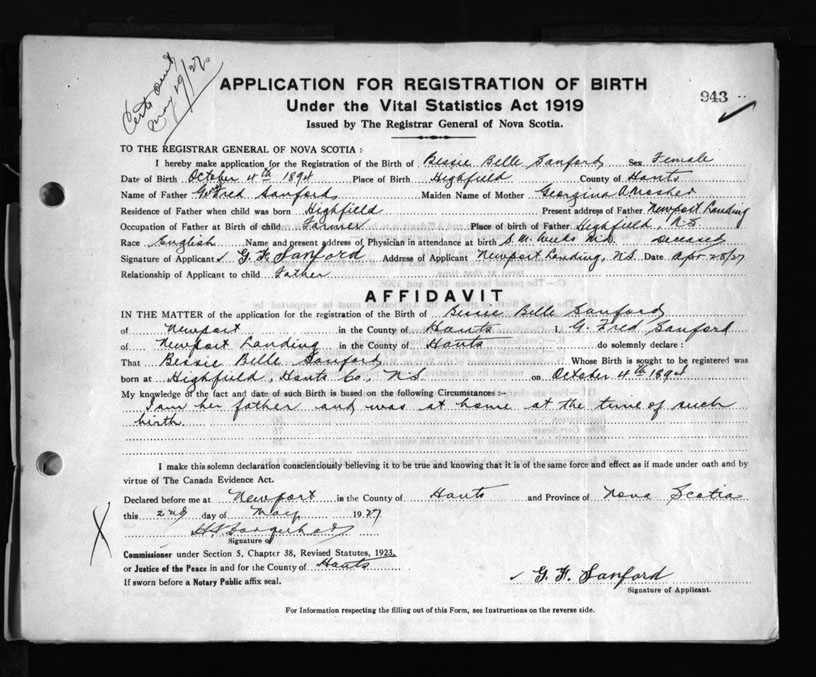 Certs sent
May 19/27
APPLICATION FOR REGISTRATION OF BIRTH
943
Under the Vital Statistics Act 1919
Issued by The Registrar General of Nova Scotia.
TO THE REGISTRAR GENERAL OF NOVA SCOTIA :
I hereby make application for the Registration of the Birth of Bessie Belle Sanford Sex Female
Date of Birth October 4th 1894 Place of Birth Highfield County of Hants
Name of Father G. Fred Sanford Maiden Name of Mother Georgina A Mosher
Residence of Father when child was born Highfield Present address of Father Newport Landing
Occupation of Father at Birth of child Farmer Place of birth of Father Highfield, N.S.
Race English Name and present address of Physician in attendance at birth S. M. Weeks M.D.
Signature of Applicant G. F. Sanford Address of Applicant Newport Landing, N.S. Date Apr. 28/27
Relationship of Applicant to child Father
AFFIDAVIT
IN THE MATTER of the application for the registration of the Birth of Bessie Belle Sanford
of Newport in the County of Hants I, G. Fred Sanford
of Newport Landing in the County of Hants do solemnly declare :
That Bessie Belle Sanford Whose Birth is sought to be registered was
born at Highfield, Hants Co., N.S. on October 4th 1894
My knowledge of the fact and date of such Birth is based on the following Circumstances :-
I am her father and was at home at the time of such
birth.
I make this solemn declaration conscientiously believing it to be true and knowing that it is of the same force and effect as if made under oath and by
virtue of The Canada Evidence Act.
Declared before me at Newport in the County of Hants and Province of Nova Scotia
this 2nd day of May 1927
Signature of
Commissioner under Section 5, Chapter 38, Revised Statutes, 1923,
or Justice of the Peace in and for the County of Hants
If sworn before a Notary Public affix seal.
G. F. Sanford
Signature of Applicant.
For Information respecting the filling out of this Form, see Instructions on the reverse side.